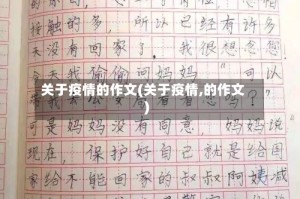 接触的多，所以已经有许多
天没有回家了。我很想念您
今天我偷偷问妈妈 可以
关于疫情的作文(关于疫情,的作文
)
可是妈妈没有同意，妈妈说
现在，保护好自己就是给国
家给不能回家的叔叔阿姨减